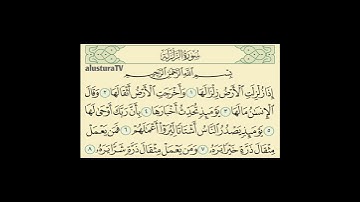 سُورَةُ الزَّلْزَلَةِ
alusturaTV
بِسْمِ اللَّهِ الرَّحْمَٰنِ الرَّحِيمِ
إِذَا زُلْزِلَتِ الْأَرْضُ زِلْزَالَهَا ١ وَأَخْرَجَتِ الْأَرْضُ أَثْقَالَهَا ٢ وَقَالَ
الْإِنسَٰنُ مَا لَهَا ٣ يَوْمَئِذٍ تُحَدِّثُ أَخْبَارَهَا ٤ بِأَنَّ رَبَّكَ أَوْحَىٰ لَهَا
٥ يَوْمَئِذٍ يَصْدُرُ النَّاسُ أَشْتَاتًا لِّيُرَوْا أَعْمَٰلَهُمْ ٦ فَمَن يَعْمَلْ
مِثْقَالَ ذَرَّةٍ خَيْرًا يَرَهُ ٧ وَمَن يَعْمَلْ مِثْقَالَ ذَرَّةٍ شَرًّا يَرَهُ ٨